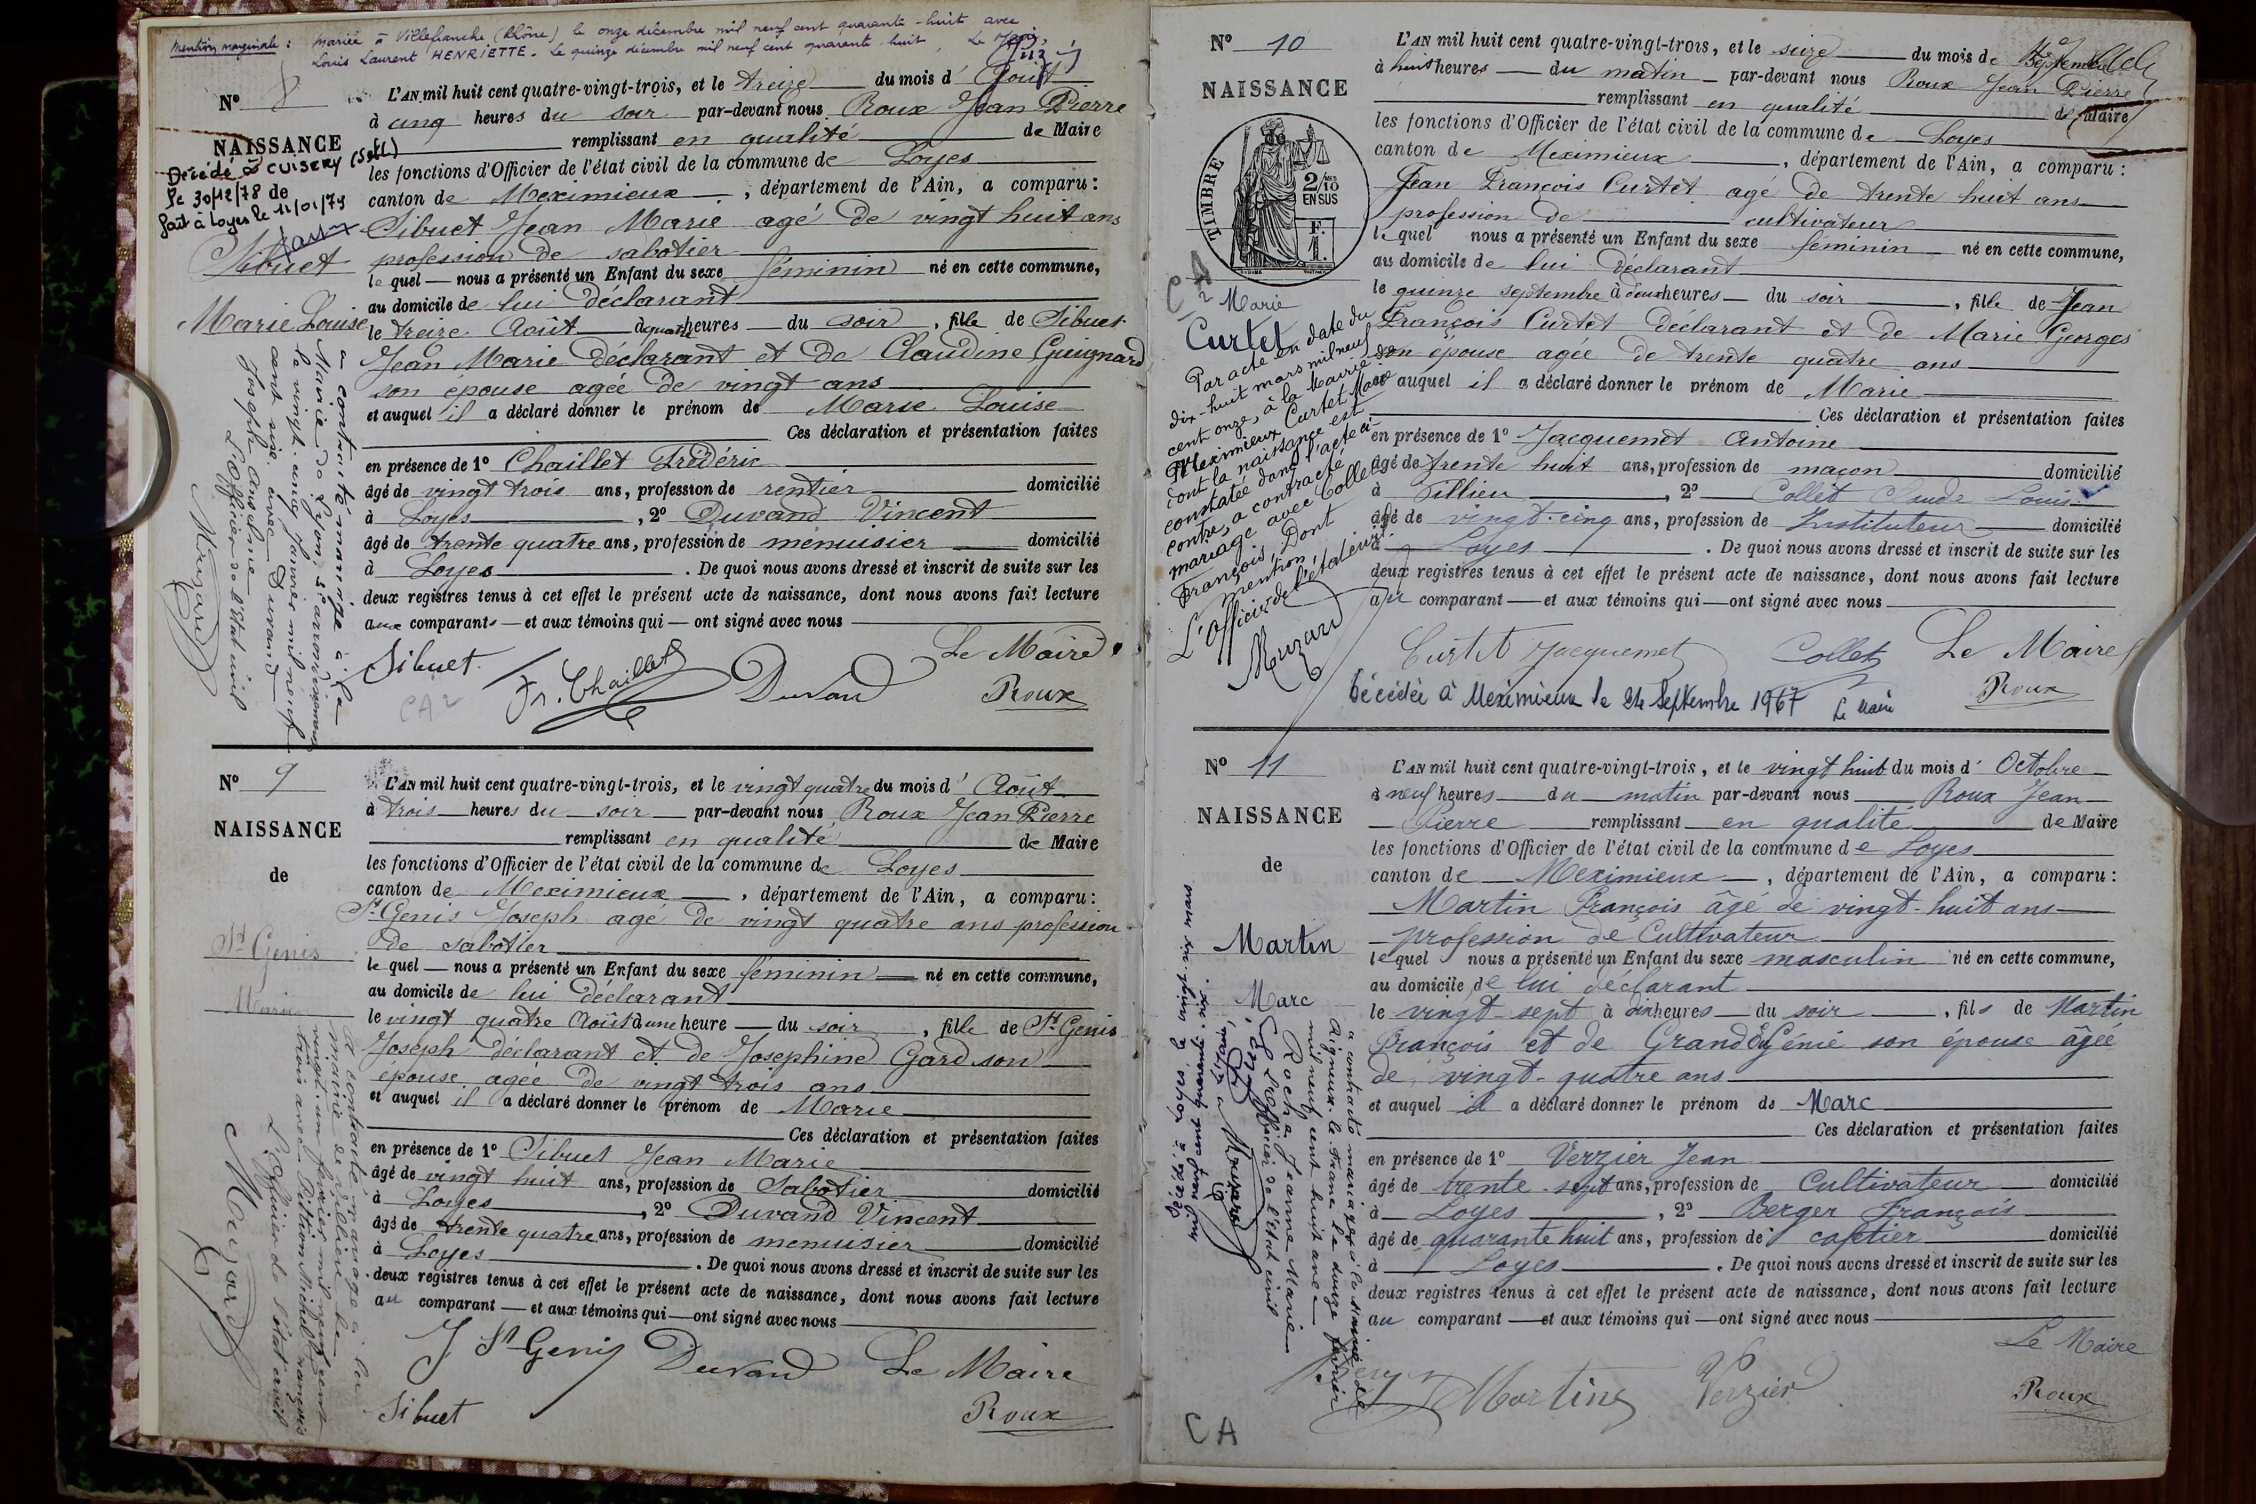 Mention marginale : Mariée à Villefranche (Rhône) le onze décembre mil neuf cent quarante-huit avec
Louis Laurent HENRIETTE. Le quinze décembre mil neuf cent quarante-huit, Le Maire,
N° 8
NAISSANCE
Décédé à CUISERY (S&L)
le 30/12/78 de
fait à Loyes le 11/01/79
Sibuet
Marie Louise
a contracté mariage à la
Mairie de Lyon, arrondissement
le vingt cinq janvier mil neuf
cent six avec Durand
Joseph Anselme
L'Officier de l'état civil
Muzard
L'AN mil huit cent quatre-vingt-trois, et le treize du mois d' Août
à cinq heures du soir par-devant nous Roux Jean Pierre
remplissant en qualité de Maire
les fonctions d'Officier de l'état civil de la commune de Loyes
canton de Meximieux, département de l'Ain, a comparu :
Sibuet Jean Marie agé de vingt huit ans
profession de sabotier
le quel — nous a présenté un Enfant du sexe féminin né en cette commune,
au domicile de lui déclarant
le treize Août à quatre heures du soir, fille de Sibuet
Jean Marie déclarant et de Claudine Guignard
son épouse agée de vingt ans
et auquel il a déclaré donner le prénom de Marie Louise
Ces déclaration et présentation faites
en présence de 1° Chaillet Frédéric
âgé de vingt trois ans, profession de rentier domicilié
à Loyes, 2° Durand Vincent
âgé de trente quatre ans, profession de menuisier domicilié
à Loyes. De quoi nous avons dressé et inscrit de suite sur les
deux registres tenus à cet effet le présent acte de naissance, dont nous avons fait lecture
aux comparants — et aux témoins qui — ont signé avec nous
Le Maire
Sibuet Fr. Chaillet Durand Roux
CA 2
N° 9
NAISSANCE
de
St Genis
Marie
A contracté mariage à la
mairie de Villieu le
vingt-un février mil neuf cent
trois avec Michel François
L'Officier de l'état civil
Muzard
L'AN mil huit cent quatre-vingt-trois, et le vingt quatre du mois d' Août
à trois heures du soir par-devant nous Roux Jean Pierre
remplissant en qualité de Maire
les fonctions d'Officier de l'état civil de la commune de Loyes
canton de Meximieux, département de l'Ain, a comparu :
St Genis Joseph agé de vingt quatre ans profession
de sabotier
le quel — nous a présenté un Enfant du sexe féminin — né en cette commune,
au domicile de lui déclarant
le vingt quatre Août à une heure — du soir, fille de St Genis
Joseph déclarant et de Josephine Gard son
épouse agée de vingt trois ans
et auquel il a déclaré donner le prénom de Marie
Ces déclaration et présentation faites
en présence de 1° Sibuet Jean Marie
âgé de vingt huit ans, profession de Sabotier domicilié
à Loyes, 2° Durand Vincent
âgé de trente quatre ans, profession de menuisier domicilié
à Loyes. De quoi nous avons dressé et inscrit de suite sur les
deux registres tenus à cet effet le présent acte de naissance, dont nous avons fait lecture
au comparant — et aux témoins qui — ont signé avec nous
J St Genis Durand Le Maire
Sibuet Roux
N° 10
NAISSANCE
TIMBRE
2/10 EN SUS
F. 1.
CA 2
Marie
Curtet
Par acte en date du
dix-huit mars mil neuf
cent onze, à la Mairie de
Meximieux Curtet Marie
dont la naissance est
constatée dans l'acte ci-
contre, a contracté
mariage avec Collet
François, Dont
mention,
L'Officier de l'état civil
Muzard
L'AN mil huit cent quatre-vingt-trois, et le seize du mois de Septembre
à huit heures — du matin — par-devant nous Roux Jean Pierre
remplissant en qualité de Maire
les fonctions d'Officier de l'état civil de la commune de Loyes
canton de Meximieux, département de l'Ain, a comparu :
Jean François Curtet agé de trente huit ans
profession de cultivateur
le quel nous a présenté un Enfant du sexe féminin né en cette commune,
au domicile de lui déclarant
le quinze septembre à deux heures — du soir, fille de Jean
François Curtet déclarant et de Marie Georges
son épouse agée de trente quatre ans
et auquel il a déclaré donner le prénom de Marie
Ces déclaration et présentation faites
en présence de 1° Jacquemet Antoine
âgé de trente huit ans, profession de maçon domicilié
à Villieu, 2° Collet Claude Louis
âgé de vingt-cinq ans, profession de Instituteur domicilié
à Loyes. De quoi nous avons dressé et inscrit de suite sur les
deux registres tenus à cet effet le présent acte de naissance, dont nous avons fait lecture
au comparant — et aux témoins qui — ont signé avec nous
Curtet Jacquemet Collet Le Maire
Roux
Décédée à Meximieux le 24 Septembre 1967 Le Maire
N° 11
NAISSANCE
de
Martin
Marc
a contracté mariage à la mairie de
Rigneux-le-Franc le douze février
mil neuf cent huit avec
Rocha Jeanne Marie
L'Officier de l'état civil
Muzard
Décédé à Loyes le vingt-six mars
mil neuf cent quarante-six.
Le Maire,
L'AN mil huit cent quatre-vingt-trois, et le vingt huit du mois d' Octobre
à neuf heures — du — matin par-devant nous Roux Jean
Pierre remplissant en qualité de Maire
les fonctions d'Officier de l'état civil de la commune de Loyes
canton de Meximieux, département de l'Ain, a comparu :
Martin François âgé de vingt-huit ans
profession de Cultivateur
le quel nous a présenté un Enfant du sexe masculin né en cette commune,
au domicile de lui déclarant
le vingt-sept à dix heures — du soir, fils de Martin
François et de Grand Eugénie son épouse âgée
de vingt-quatre ans
et auquel il a déclaré donner le prénom de Marc
Ces déclaration et présentation faites
en présence de 1° Verzier Jean
âgé de trente-sept ans, profession de Cultivateur domicilié
à Loyes, 2° Berger François
âgé de quarante huit ans, profession de cafetier domicilié
à Loyes. De quoi nous avons dressé et inscrit de suite sur les
deux registres tenus à cet effet le présent acte de naissance, dont nous avons fait lecture
au comparant — et aux témoins qui — ont signé avec nous
Le Maire
Martin Verzier
Roux
CA